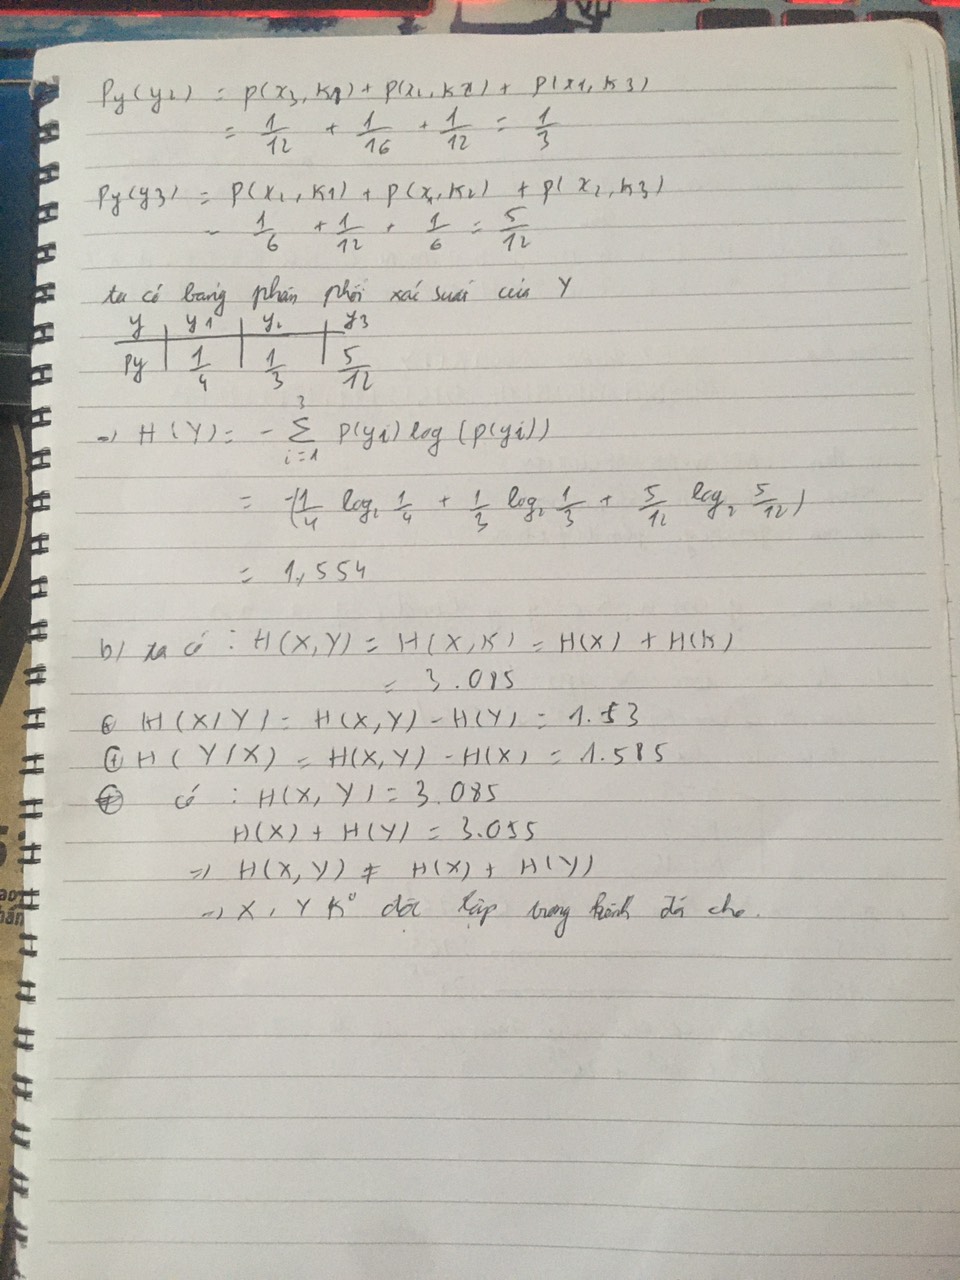 Py(y₂) = p(x3, k1) + p(x1, k2) + p(x1, k3)
= 1/12 + 1/16 + 1/12 = 1/3
Py(y3) = p(x1, k1) + p(x1, k2) + p(x2, k3)
= 1/6 + 1/12 + 1/6 = 5/12
ta có bảng phân phối xác suất của Y
y | y1 | y₂ | y3
Py | 1/4 | 1/3 | 5/12
=> H(Y) = - 3 Σ i=1 P(yi) log (p(yi))
= -(1/4 log₂ 1/4 + 1/3 log₂ 1/3 + 5/12 log₂ 5/12)
= 1,554
b/ ta có : H(X,Y) = H(X,K) = H(X) + H(K)
= 3.085
H(X/Y) = H(X,Y) - H(Y) = 1.53
⊕ H(Y/X) = H(X,Y) - H(X) = 1.585
⊕ có : H(X,Y) = 3.085
H(X) + H(Y) = 3.055
=> H(X,Y) ≠ H(X) + H(Y)
=> X, Y K° độc lập trong kênh đã cho.